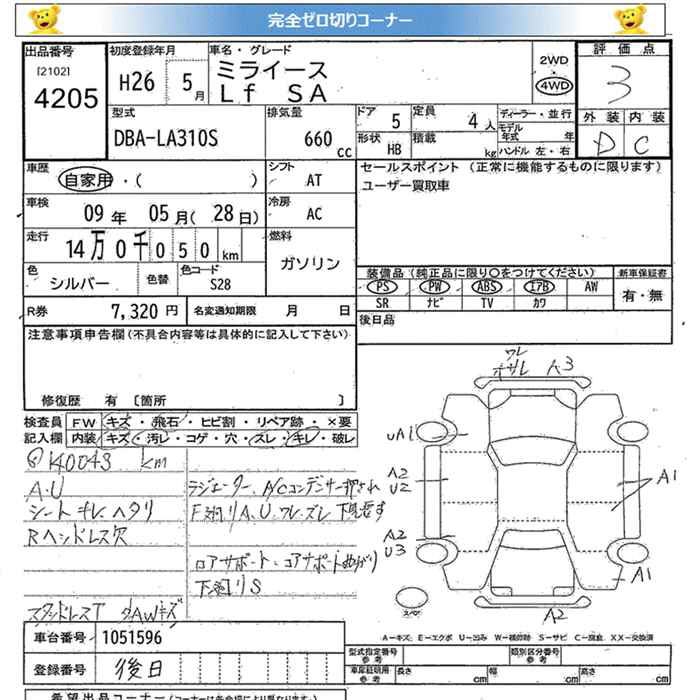 完全ゼロ切りコーナー
出品番号
[2102]
4205
初度登録年月
H26 5月
車名・グレード
ミライース
Lf SA
2WD
4WD
評価点
3
外装 内装
D C
型式
DBA-LA310S
排気量
660 cc
ドア
5
定員
4人
形状
HB
積載
kg
ディーラー・並行
モデル年式 年
ハンドル 左・右
車歴
自家用・( )
シフト
AT
車検
09年 05月(28日)
冷房
AC
走行
14万0千050km
燃料
ガソリン
色
シルバー
色替
色コード
S28
R券
7,320円
名変通知期限 月 日
セールスポイント (正常に機能するものに限ります)
ユーザー買取車
装備品(純正品に限り○をつけてください)
PS PW ABS エアB AW
SR ナビ TV カワ
新車保証書
有・無
後日品
注意事項申告欄(不具合内容等は具体的に記入して下さい)
修復歴 有 [箇所 ]
検査員記入欄
FW キズ・飛石・ヒビ割・リペア跡・×要
内装 キズ・汚レ・コゲ・穴・スレ・キレ・破レ
140043 km
A.U
シートキレヘタリ
Rヘッドレス欠
ラジエーター、A/Cコンデンサー押され
F廻りA.U.ワレ.ズレ下見要す
ロアサポート・コアサポート曲がり
下廻りS
スタッドレスT
AWキズ
ワレ
オサレ A3
UA1
A2
U2
A2
U3
A1
A1
A2
スペア
A-キズ E-エクボ U-凹み W-補修跡 S-サビ C-腐食 XX-交換済
車台番号 1051596
登録番号 後日
型式指定番号
参考
類別区分番号
参考
車庫証明用
参考
長さ cm
幅 cm
高さ cm
希望出品コーナー